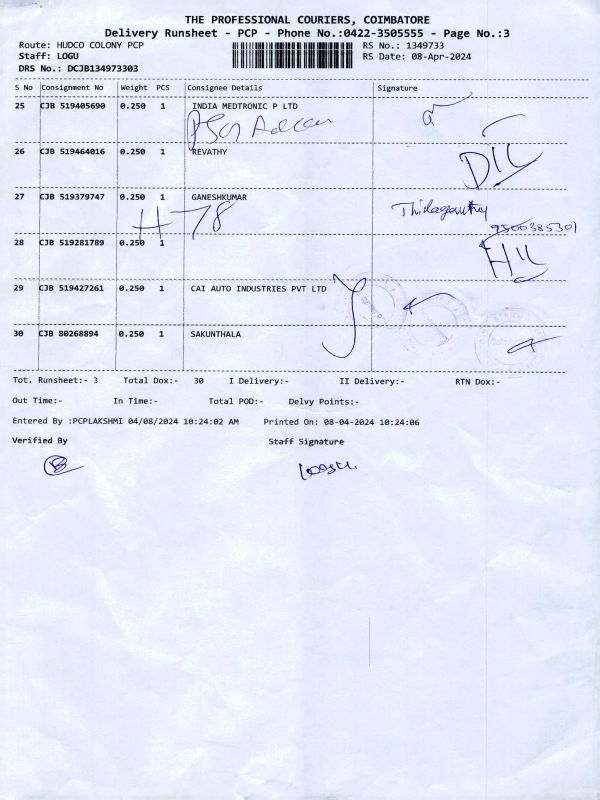 THE PROFESSIONAL COURIERS, COIMBATORE
Delivery Runsheet - PCP - Phone No.:0422-3505555 - Page No.:3
Route: HUDCO COLONY PCP RS No.: 1349733
Staff: LOGU RS Date: 08-Apr-2024
DRS No.: DCJB134973303
S No Consignment No Weight PCS Consignee Details Signature
25 CJB 519405690 0.250 1 INDIA MEDTRONIC P LTD
26 CJB 519464016 0.250 1 REVATHY
27 CJB 519379747 0.250 1 GANESHKUMAR
H 78
28 CJB 519281789 0.250 1
29 CJB 519427261 0.250 1 CAI AUTO INDUSTRIES PVT LTD
30 CJB 80268894 0.250 1 SAKUNTHALA
Tot. Runsheet:- 3 Total Dox:- 30 I Delivery:- II Delivery:- RTN Dox:-
Out Time:- In Time:- Total POD:- Delvy Points:-
Entered By :PCPLAKSHMI 04/08/2024 10:24:02 AM Printed On: 08-04-2024 10:24:06
Verified By Staff Signature